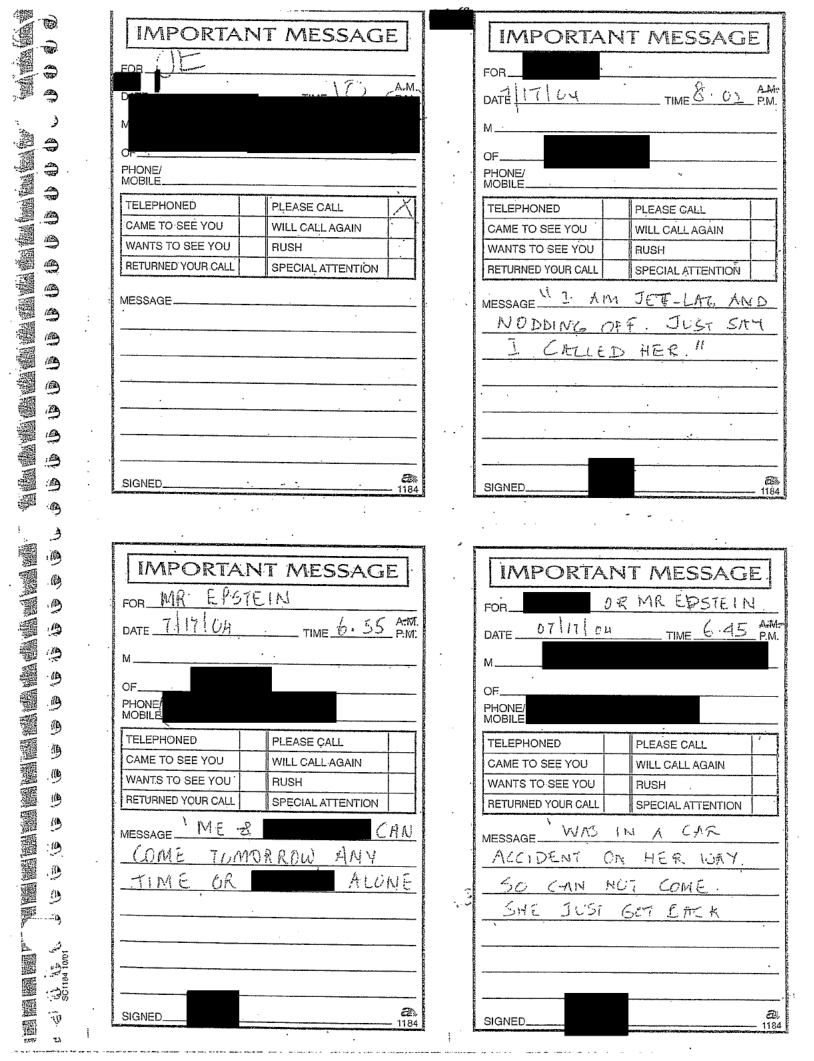 IMPORTANT MESSAGE
FOR JE
DATE TIME A.M.
M
OF
PHONE/
MOBILE
TELEPHONED PLEASE CALL X
CAME TO SEE YOU WILL CALL AGAIN
WANTS TO SEE YOU RUSH
RETURNED YOUR CALL SPECIAL ATTENTION
MESSAGE
SIGNED
1184
IMPORTANT MESSAGE
FOR
DATE 7/17/04 TIME 8.02 A.M.
P.M.
M
OF
PHONE/
MOBILE
TELEPHONED PLEASE CALL
CAME TO SEE YOU WILL CALL AGAIN
WANTS TO SEE YOU RUSH
RETURNED YOUR CALL SPECIAL ATTENTION
MESSAGE "I AM JET-LAG AND
NODDING OFF. JUST SAY
I CALLED HER."
SIGNED
1184
IMPORTANT MESSAGE
FOR MR EPSTEIN
DATE 7/17/04 TIME 6.55 A.M.
P.M.
M
OF
PHONE/
MOBILE
TELEPHONED PLEASE CALL
CAME TO SEE YOU WILL CALL AGAIN
WANTS TO SEE YOU RUSH
RETURNED YOUR CALL SPECIAL ATTENTION
MESSAGE 'ME & CAN
COME TOMORROW ANY
TIME OR ALONE
SIGNED
1184
SC1184 10/01
IMPORTANT MESSAGE
FOR OR MR EPSTEIN
DATE 07/17/04 TIME 6.45 A.M.
P.M.
M
OF
PHONE/
MOBILE
TELEPHONED PLEASE CALL
CAME TO SEE YOU WILL CALL AGAIN
WANTS TO SEE YOU RUSH
RETURNED YOUR CALL SPECIAL ATTENTION
MESSAGE 'WAS IN A CAR
ACCIDENT ON HER WAY.
SO CAN NOT COME.
SHE JUST GET BACK
SIGNED
1184